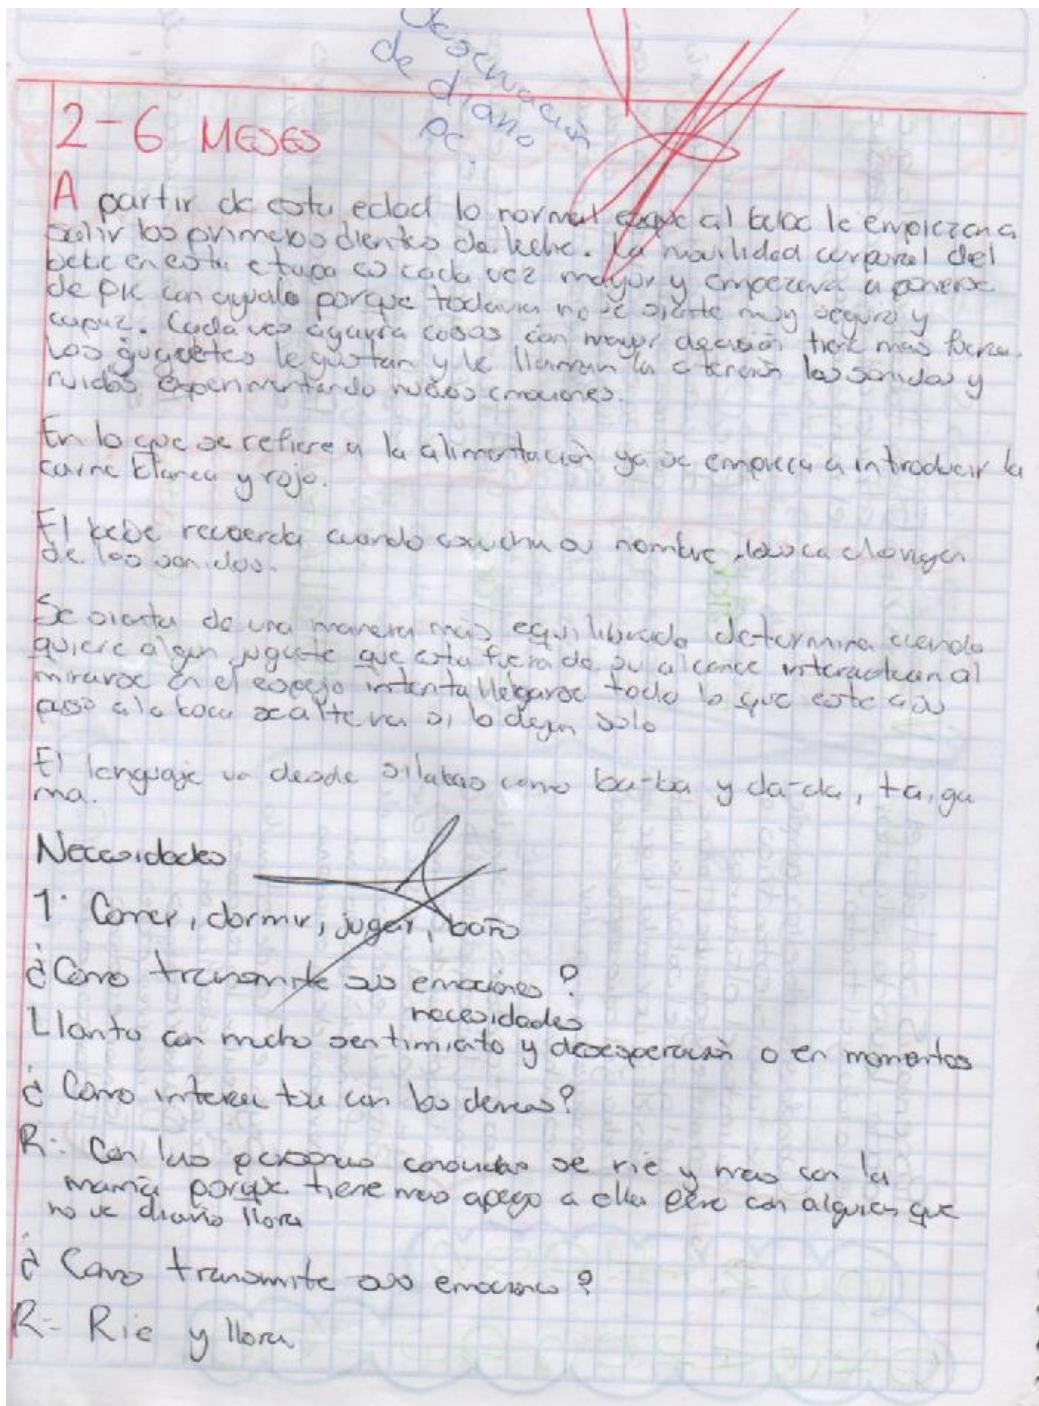 Observación
de diario
pc.
2-6 MESES
A partir de esta edad lo normal esque al bebe le empiezan a
salir los primeros dientes de leche. La movilidad corporal del
bebe en esta etapa es cada vez mayor y empezara a ponerse
de pie con ayuda porque todavia no se siente muy seguro y
capaz. Cada ves agarra cosas con mayor decisión tiene mas fuerza.
Los juguetes le gustan y le llaman la atención los sonidos y
ruidos experimentando nuevas emociones.
En lo que se refiere a la alimentación ya se empieza a introducir la
carne blanca y rojo.
El bebe recuerda cuando escucha su nombre, busca el origen
de los sonidos.
Se sienta de una manera más equilibrada determina cuando
quiere algun juguete que esta fuera de su alcance interactuan al
mirarse en el espejo intenta llebarse todo lo que este a su
paso a la boca se altera si lo dejan solo
El lenguaje va desde silabas como ba-ba y da-da, ta, ga
ma.
Necesidades
1. Comer, dormir, jugar, baño
¿Como transmite sus emociones?
necesidades
Llanto con mucho sentimiento y desesperación o en momentos
¿Como interactua con los demas?
R: Con las personas conocidas se rie y mas con la
mamá porque tiene mas apego a ella pero con alguien que
no ve diario llora
¿Como transmite sus emociones?
R- Rie y llora